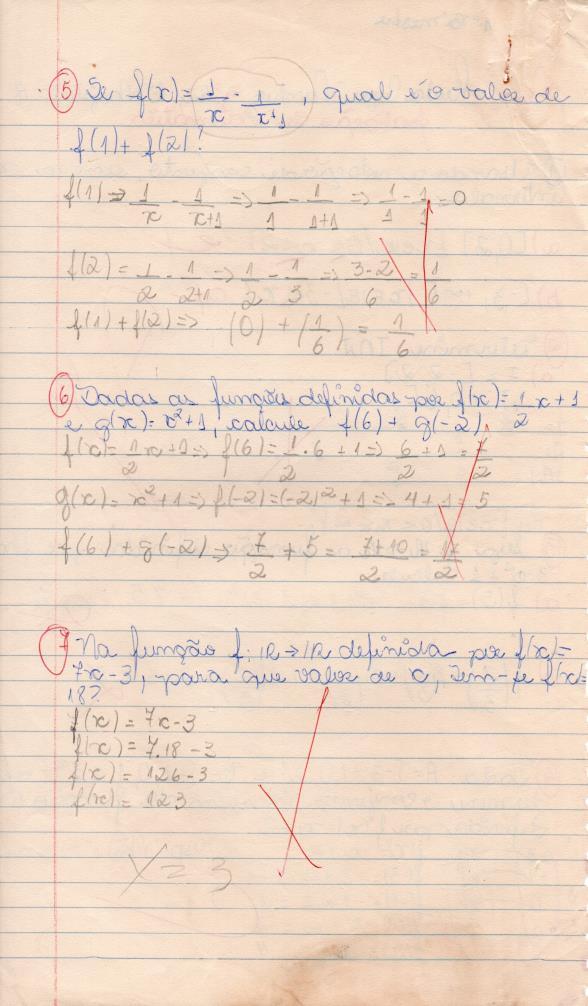 5 Se f(x) = 1/x - 1/x+1, qual é o valor de
f(1) + f(2)?
f(1) ⇒ 1/x - 1/x+1 ⇒ 1/1 - 1/1+1 ⇒ 1/1 - 1/1 = 0
f(2) = 1/2 - 1/2+1 ⇒ 1/2 - 1/3 ⇒ 3-2/6 = 1/6
f(1) + f(2) ⇒ (0) + (1/6) = 1/6
6 Dadas as funções definidas por f(x) = 1/2 x + 1
e g(x) = x² + 1, calcule f(6) + g(-2).
f(x) = 1/2 x + 1 ⇒ f(6) = 1/2 . 6 + 1 ⇒ 6+1/2 = 7/2
g(x) = x² + 1 ⇒ f(-2) = (-2)² + 1 ⇒ 4 + 1 = 5
f(6) + g(-2) ⇒ 7/2 + 5 = 7+10/2 = 17/2
7 Na função f: IR → IR definida por f(x) =
7x - 3, para que valor de x, tem-se f(x) =
18?
f(x) = 7x - 3
f(x) = 7.18 - 3
f(x) = 126 - 3
f(x) = 123
X = 3